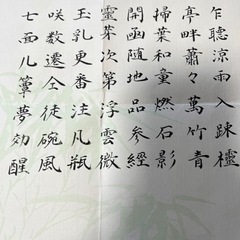 乍聽涼雨入疎櫺
亭畔蕭々萬竹青
掃葉和童燃石影
開函随地品參經
靈芽次第浮雲微
玉乳更番注凡瓶
咲数還仝徒碗風
七面儿簟夢効醒